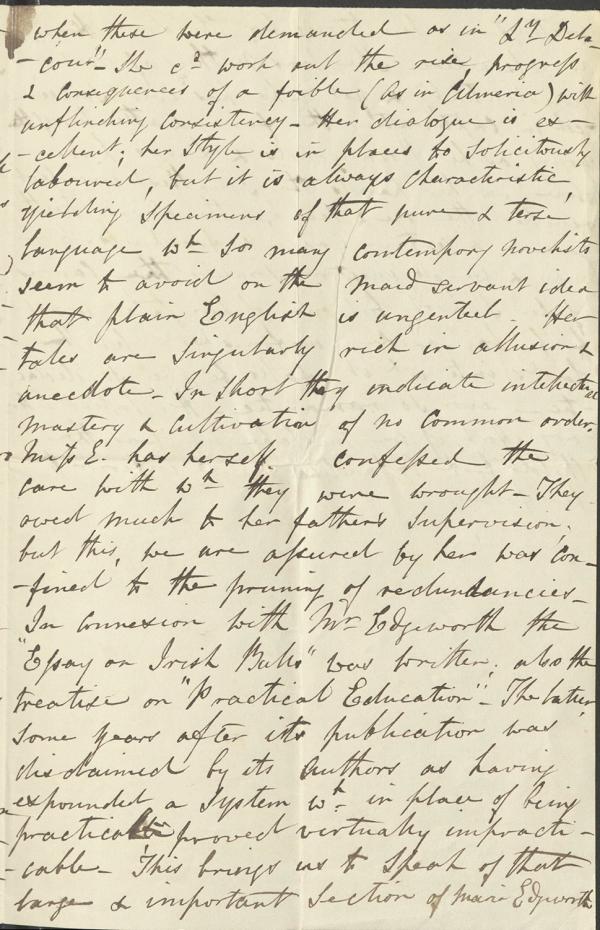 when these were demanded as in "Ly Dela-
-cour" She cd work out the rise, progress
& consequences of a foible (as in Almeria) with
unflinching consistency - Her dialogue is ex-
-cellent; her style is in places to solicitously
laboured, but it is always characteristic,
yielding specimens of that pure & terse
language wh so many contempory novelists
seem to avoid on the maid servant idea
that plain English is ungenteel. Her
tales are singularly rich in allusion &
anecdote - In short they indicate intellectual
mastery & cultivation of no common order.
Miss E. has herself confessed the
care with wh they were wrought - They
owed much to her father's supervision;
but this, we are assured by her was con-
-fined to the pruning of redundancies -
In connexion with Mr Edgeworth the
"Essay on Irish Bulls" was written; also the
treatise on "Practical Education" - The latter
some years after its publication was
disclaimed by its authors as having
expounded a system wh in place of being
practical proved virtually impracti-
-cable - This brings us to speak of that
large & important section of Maria Edgworth